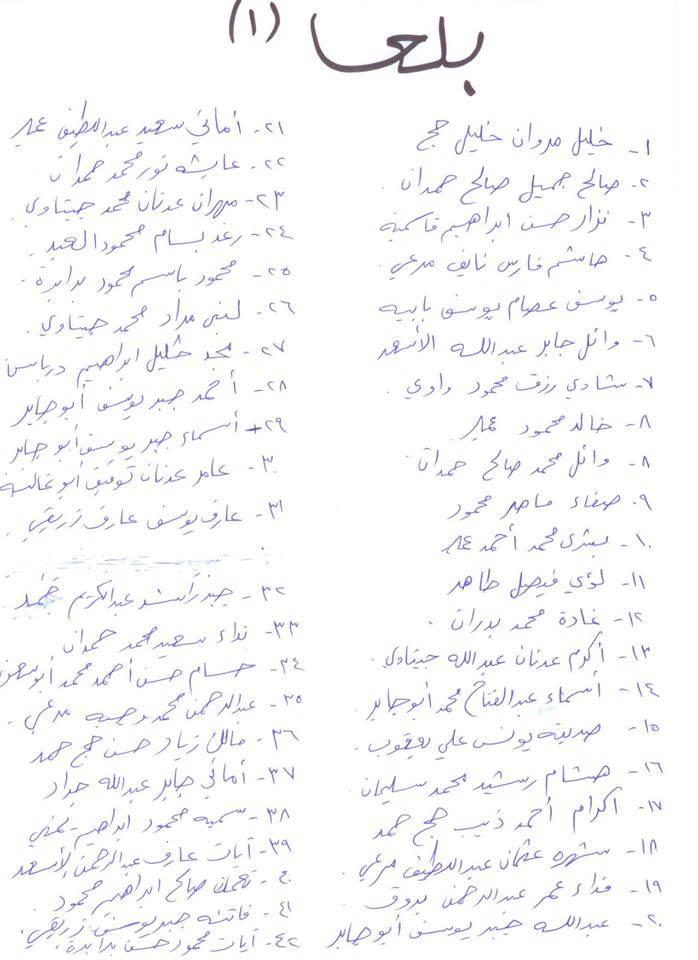 بلعا (١)
١- خليل مروان خليل حج
٢- صالح جميل صالح حمدان
٣- نزار حسن ابراهيم قاسمية
٤- هاشم فارس نايف مرعي
٥- يوسف عصام يوسف
٦- وائل جابر عبدالله الأسعد
٧- شادي رزق محمود واوي
٨- خالد محمود
٨- وائل محمد صالح حمدان
٩- صفاء ماهر محمود
١٠- بشرى محمد أحمد
١١- لؤي فيصل طاهر
١٢- غادة محمد بدران
١٣- أكرم عدنان عبدالله جيتاوي
١٤- أسماء عبدالفتاح محمد أبو جابر
١٥- صديقة يونس علي يعقوب
١٦- هشام رشيد محمد سليمان
١٧- اكرام أحمد ذيب حج حمد
١٨- شهره عثمان عبداللطيف مرعي
١٩- فداء عمر عبدالرحمن
٢٠- عبدالله جبر يوسف أبو جابر
٢١- أماني سعيد عبداللطيف
٢٢- عايشه نور محمد حمدان
٢٣- مهران عدنان محمد جيتاوي
٢٤- رغد بسام محمود العبد
٢٥- محمود باسم محمود بدابدة
٢٦- لبنى مراد محمد جيتاوي
٢٧- مجد خليل ابراهيم درباس
٢٨- أحمد جبر يوسف أبو جابر
٢٩- أسماء جبر يوسف أبو جابر
٣٠- عامر عدنان توفيق أبو
٣١- عارف يوسف عارف زريقي
٣٢- عبدالكريم
٣٣- نداء سعيد محمد حمدان
٣٤- حسام حسن احمد محمد
٣٥- عبدالرحمن محمد وجيه مرعي
٣٦- مالك زياد حسن حج حمد
٣٧- أماني جابر عبدالله جراد
٣٨- سميه محمود ابراهيم يمني
٣٩- آيات عارف عبدالرحمن الأسعد
٤٠- نعمان صالح ابراهيم محمود
٤١- فاتنه جبر يوسف زريقي
٤٢- آيات محمود حسن بدابدة